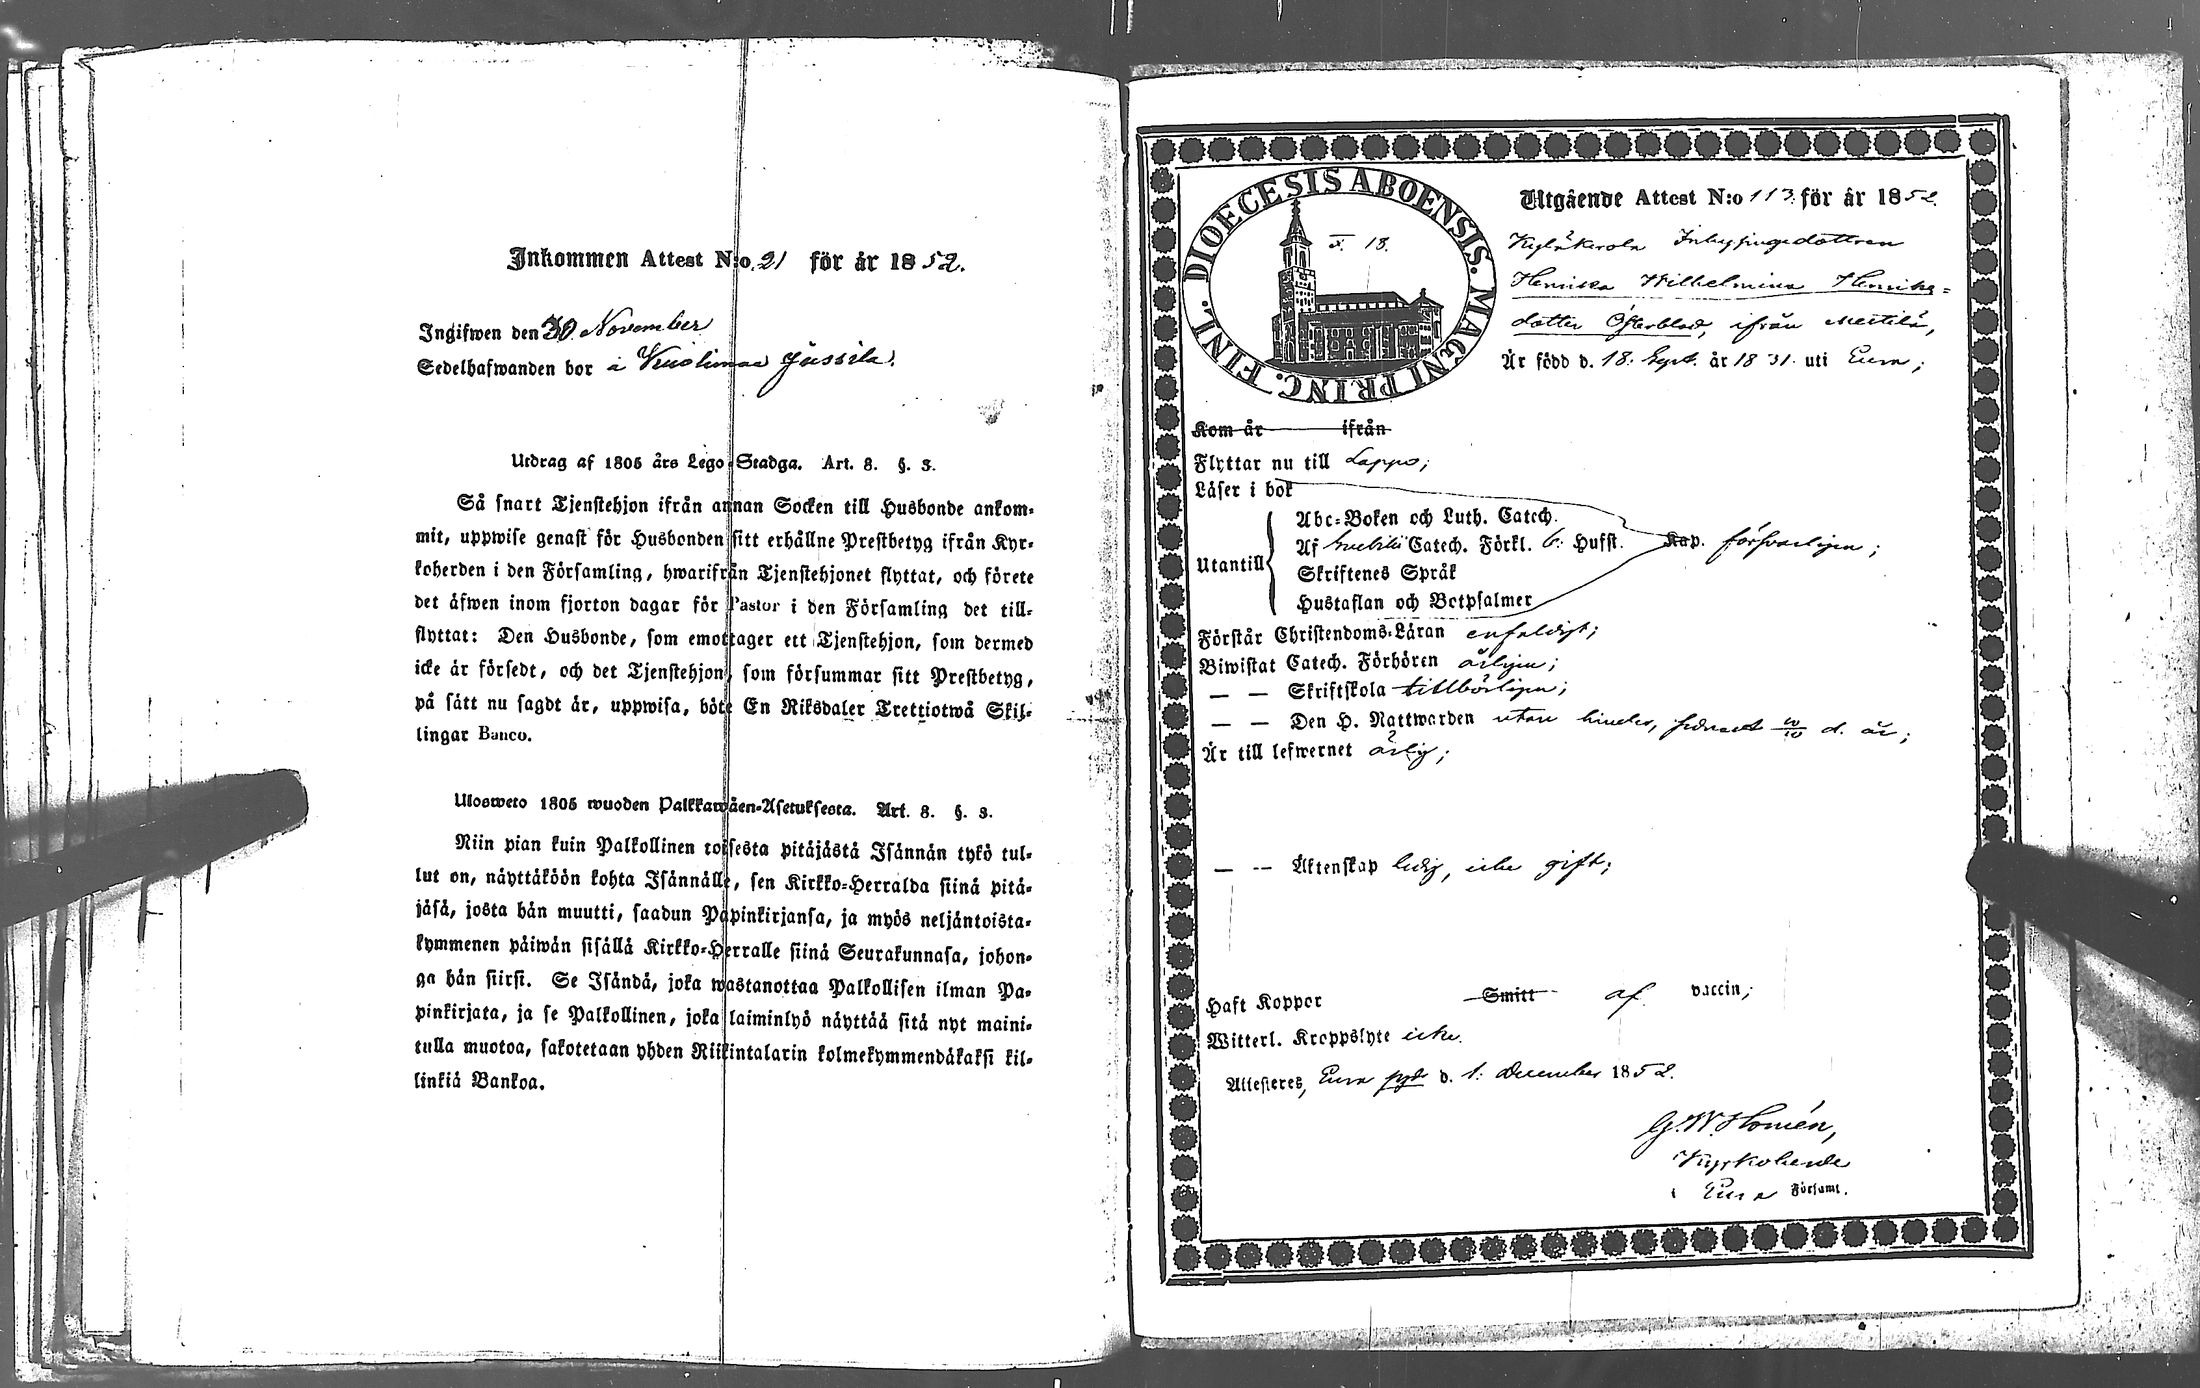 Inkommen Attest N:o 21 för år 1852.
Ingifwen den 30 November
Sedelhafwanden bor å Kuolimaa Jussila.
Utdrag af 1805 års Lego-Stadga. Art. 8. §. 3.
Så snart Tjenstehjon ifrån annan Socken till Husbonde ankom-
mit, uppwise genast för Husbonden sitt erhållne Prestbetyg ifrån Kyr-
koherden i den Församling, hwarifrån Tjenstehjonet flyttat, och förete
det äfwen inom fjorton dagar för Pastor i den Församling det till-
flyttat: Den Husbonde, som emottager ett Tjenstehjon, som dermed
icke är försedt, och det Tjenstehjon, som försummar sitt Prestbetyg,
på sätt nu sagdt är, uppwisa, böte En Riksdaler Trettiotwå Skil-
lingar Banco.
Ulosweto 1805 wuoden Palkkawäen-Asetuksesta. Art. 8. §. 3.
Niin pian kuin Palkollinen toisesta pitäjästä Isännän tykö tul-
lut on, näyttäköön kohta Isännälle, sen Kirkko-Herralda siinä pitä-
jäsä, josta hän muutti, saadun Papinkirjansa, ja myös neljäntoista-
kymmenen päiwän sisällä Kirkko-Herralle siinä Seurakunnasa, johon-
ga hän siirsi. Se Isändä, joka wastanottaa Palkollisen ilman Pa-
pinkirjata, ja se Palkollinen, joka laiminlyö näyttää sitä nyt maini-
tulla muotoa, sakotetaan yhden Riikintalarin kolmekymmendäkaksi kil-
linkiä Bankoa.
DIOECESIS ABOENSIS. MAGNI PRINC. FINL.
x. 18.
Utgående Attest N:o 113. för år 1852.
Inhysingedottren
Henrica Wilhelmina Henriks-
dotter Österblad, ifrån Mestilä,
Är född d. 18. Sept. år 1831. uti Eura;
Kom år ifrån
Flyttar nu till Lappo;
Läser i bok
Utantill
Abc-Boken och Luth. Catech.
Af Svebilii Catech. Förkl. 6. Hufst. Kap. försvarligen;
Skriftenes Språk
Hustaflan och Botpsalmer
Förstår Christendoms-Läran enfaldigt;
Biwistat Catech. Förhören årligen;
— — Skriftskola tillbörligen;
— — Den H. Nattwarden utan hinder, senast 10/10 d. år;
Är till lefwernet ärlig;
— — Äktenskap ledig, icke gift;
Haft Koppor Smitt af vaccin;
Witterl. Kroppslyte icke.
Attesteres, Eura pgd d. 1. December 1852.
G. W. Homén,
Kyrkoherde
i Eura Församl.